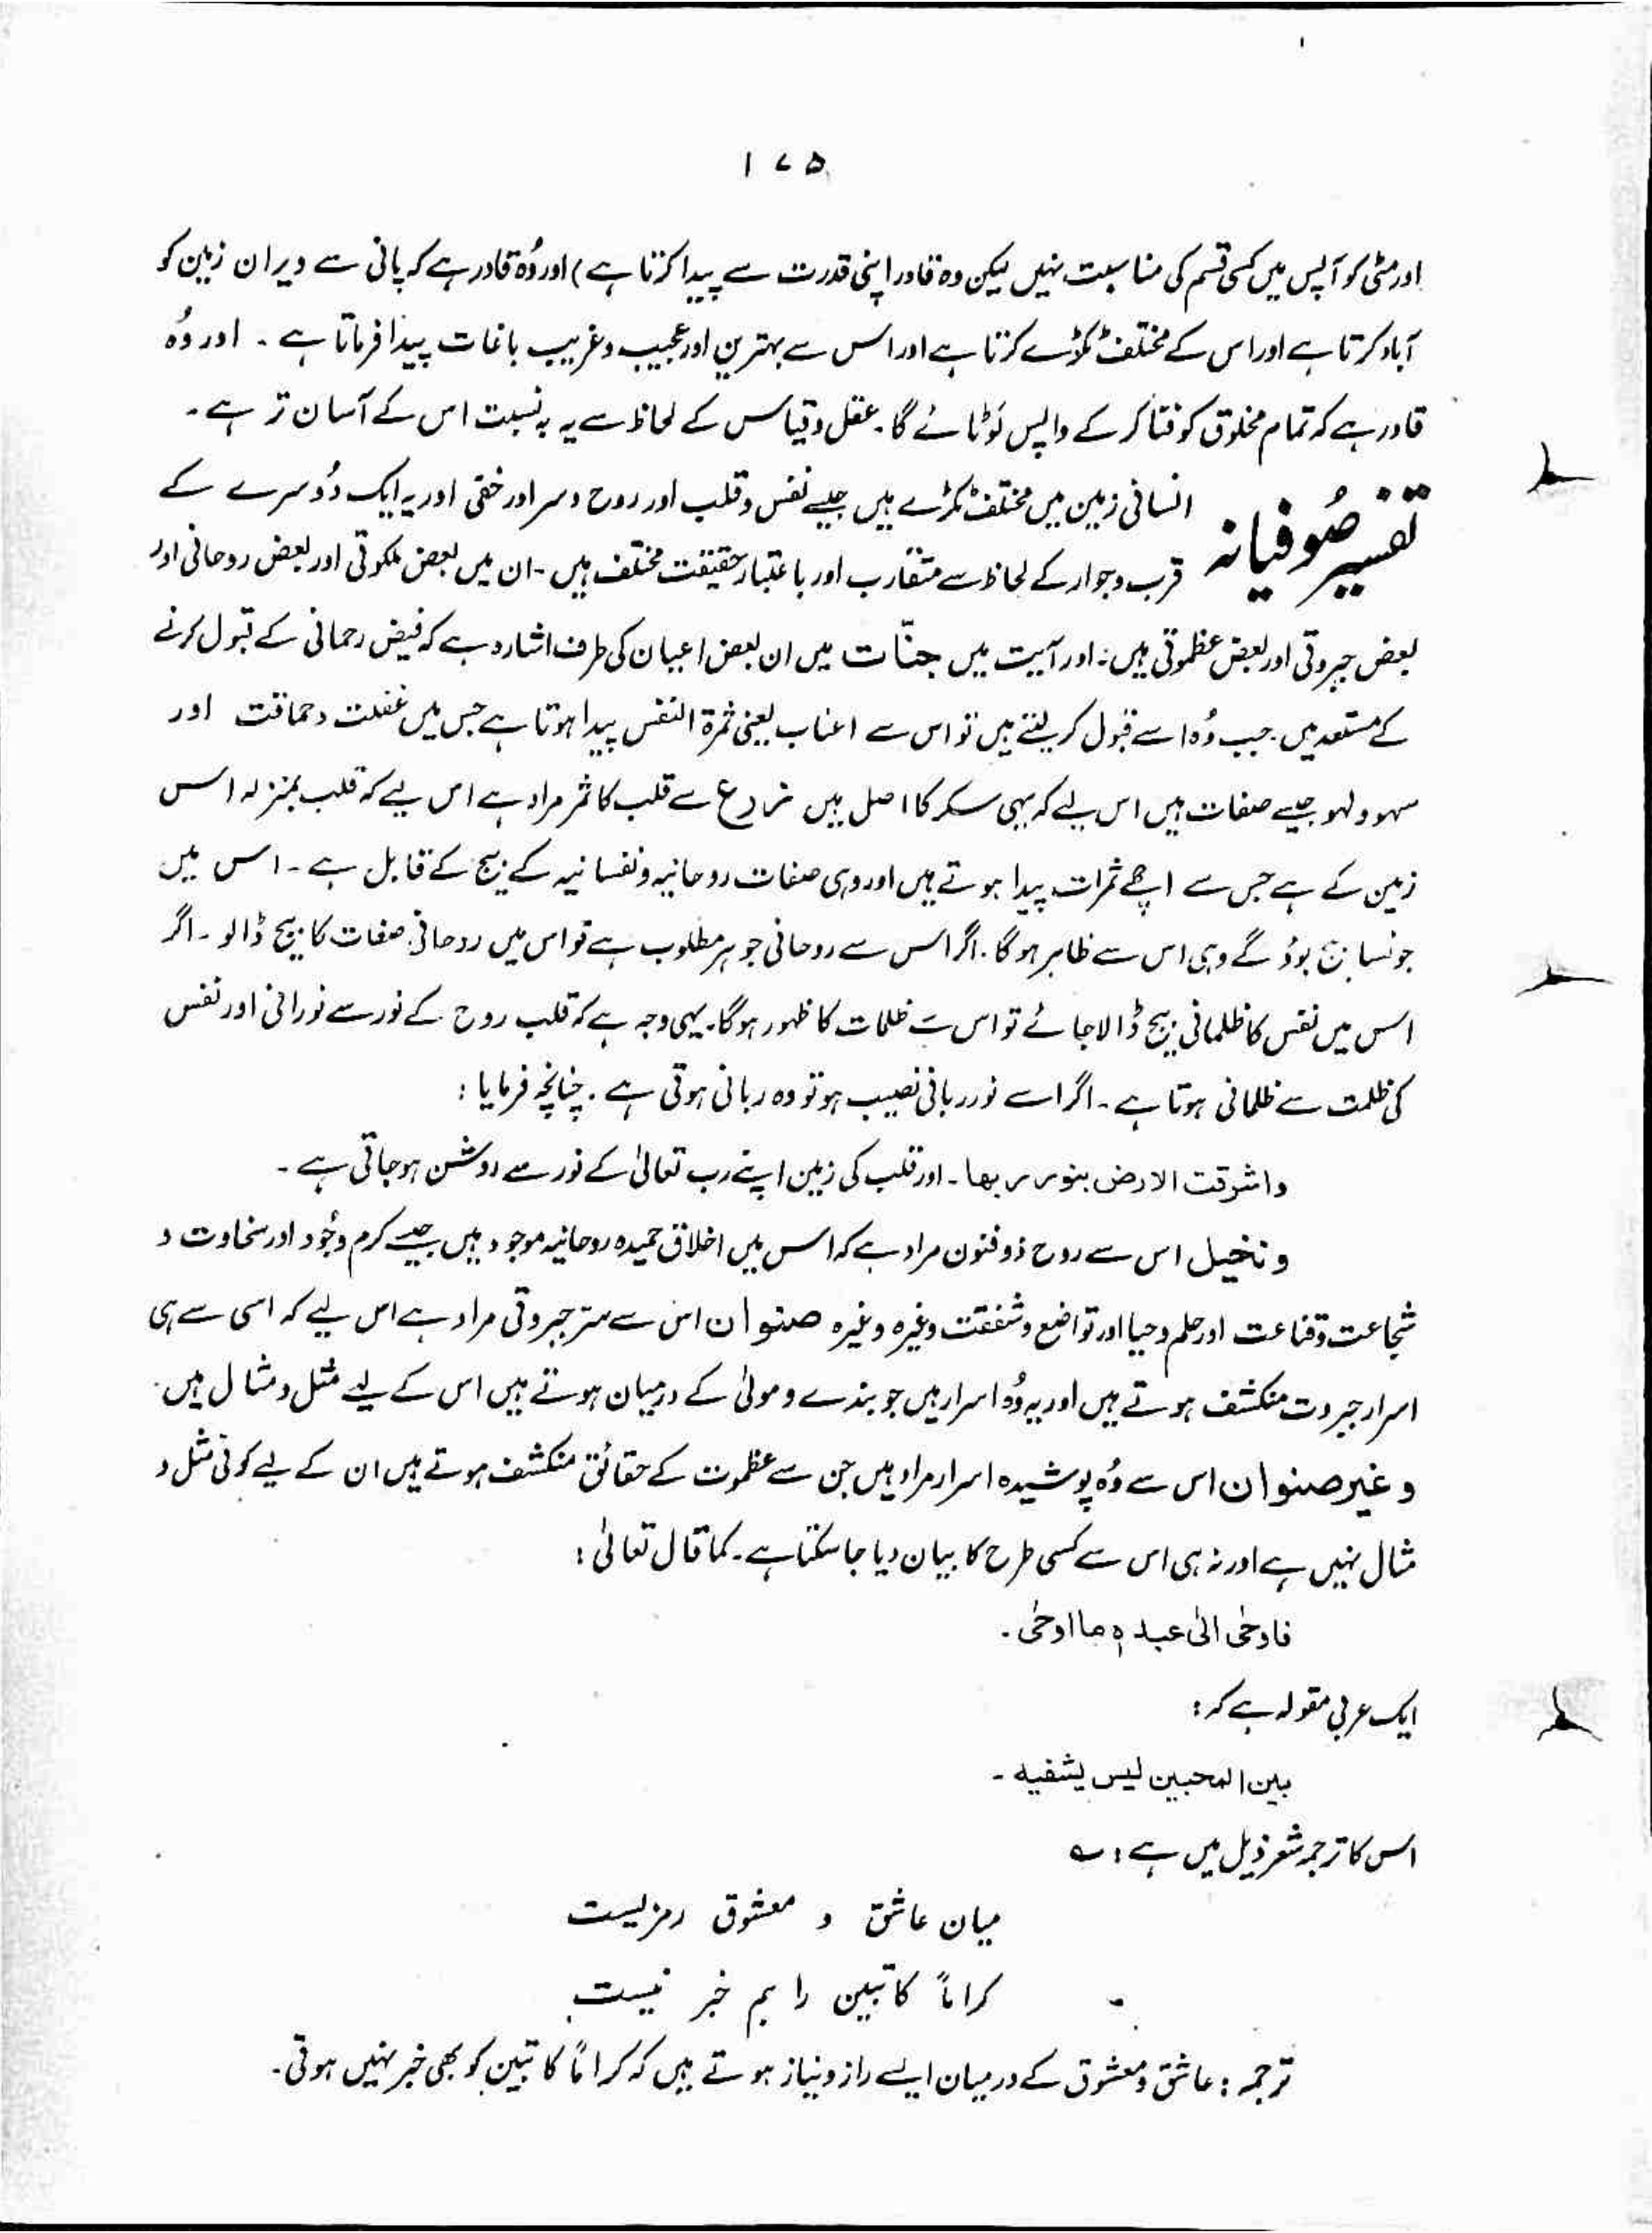 ۱۷۵
اور مٹی کو آپس میں کسی قسم کی مناسبت نہیں لیکن وہ قادر اپنی قدرت سے پیدا کرتا ہے) اور وُہ قادر ہے کہ پانی سے ویران زمین کو
آباد کرتا ہے اور اس کے مختلف ٹکڑے کرتا ہے اور اس سے بہترین اور عجیب و غریب باغات پیدا فرماتا ہے ۔ اور وُہ
قادر ہے کہ تمام مخلوق کو فنا کر کے واپس لوٹائے گا ۔ عقل و قیاس کے لحاظ سے یہ بہ نسبت اس کے آسان تر ہے ۔
تفسیر صُوفیانہ انسانی زمین میں مختلف ٹکڑے ہیں جیسے نفس و قلب اور روح و سر اور خفی اور یہ ایک دُوسرے کے
قرب و جوار کے لحاظ سے متقارب اور باعتبار حقیقت مختلف ہیں ۔ ان میں بعض ملکوتی اور بعض روحانی اور
بعض جبروتی اور بعض عظموتی ہیں ۔ اور آیت میں جنّات میں ان بعض اعیان کی طرف اشارہ ہے کہ فیض رحمانی کے قبول کرنے
کے مستعد ہیں ۔ جب وُہ اسے قبول کر لیتے ہیں تو اس سے اعناب یعنی ثمرۃ النفس پیدا ہوتا ہے جس میں غفلت و حماقت اور
سہو و لہو جیسے صفات ہیں اس لیے کہ یہی سکر کا اصل ہیں زرع سے قلب کا ثمر مراد ہے اس لیے کہ قلب بمنزلہ اس
زمین کے ہے جس سے اچھے ثمرات پیدا ہوتے ہیں اور وہی صفات روحانیہ و نفسانیہ کے بیج کے قابل ہے ۔ اس میں
جونسا بیج بوؤ گے وہی اس سے ظاہر ہو گا ۔ اگر اس سے روحانی جوہر مطلوب ہے تو اس میں روحانی صفات کا بیج ڈالو ۔ اگر
اس میں نفس کا ظلمانی بیج ڈالا جائے تو اس سے ظلمات کا ظہور ہوگا ۔ یہی وجہ ہے کہ قلب روح کے نور سے نورانی اور نفس
کی ظلمت سے ظلمانی ہوتا ہے ۔ اگر اسے نور ربانی نصیب ہو تو وہ ربانی ہوتی ہے ۔ چنانچہ فرمایا :
واشرقت الارض بنور ربھا ۔ اور قلب کی زمین اپنے رب تعالیٰ کے نور سے روشن ہو جاتی ہے ۔
و نخیل اس سے روح ذو فنون مراد ہے کہ اس میں اخلاق حمیدہ روحانیہ موجود ہیں جیسے کرم و جُود اور سخاوت و
شجاعت و قناعت اور حلم و حیا اور تواضع و شفقت وغیرہ وغیرہ صنوان اس سے سرّ جبروتی مراد ہے اس لیے کہ اسی سے ہی
اسرار جبروت منکشف ہوتے ہیں اور یہ وُہ اسرار ہیں جو بندے و مولیٰ کے درمیان ہوتے ہیں اس کے لیے مثل و مثال ہیں ۔
و غیر صنوان اس سے وُہ پوشیدہ اسرار مراد ہیں جن سے عظموت کے حقائق منکشف ہوتے ہیں ان کے لیے کوئی مثل و
مثال نہیں ہے اور نہ ہی اس سے کسی طرح کا بیان دیا جا سکتا ہے ۔ کما قال تعالیٰ :
فاوحٰی الیٰ عبدہٖ ما اوحٰی ۔
ایک عربی مقولہ ہے کہ :
بین المحبین لیس یشفیہ ۔
اس کا ترجمہ شعر ذیل میں ہے : ؎
میان عاشق و معشوق رمزیست
کراماً کاتبین را ہم خبر نیست
ترجمہ : عاشق و معشوق کے درمیان ایسے راز و نیاز ہوتے ہیں کہ کراماً کاتبین کو بھی خبر نہیں ہوتی ۔